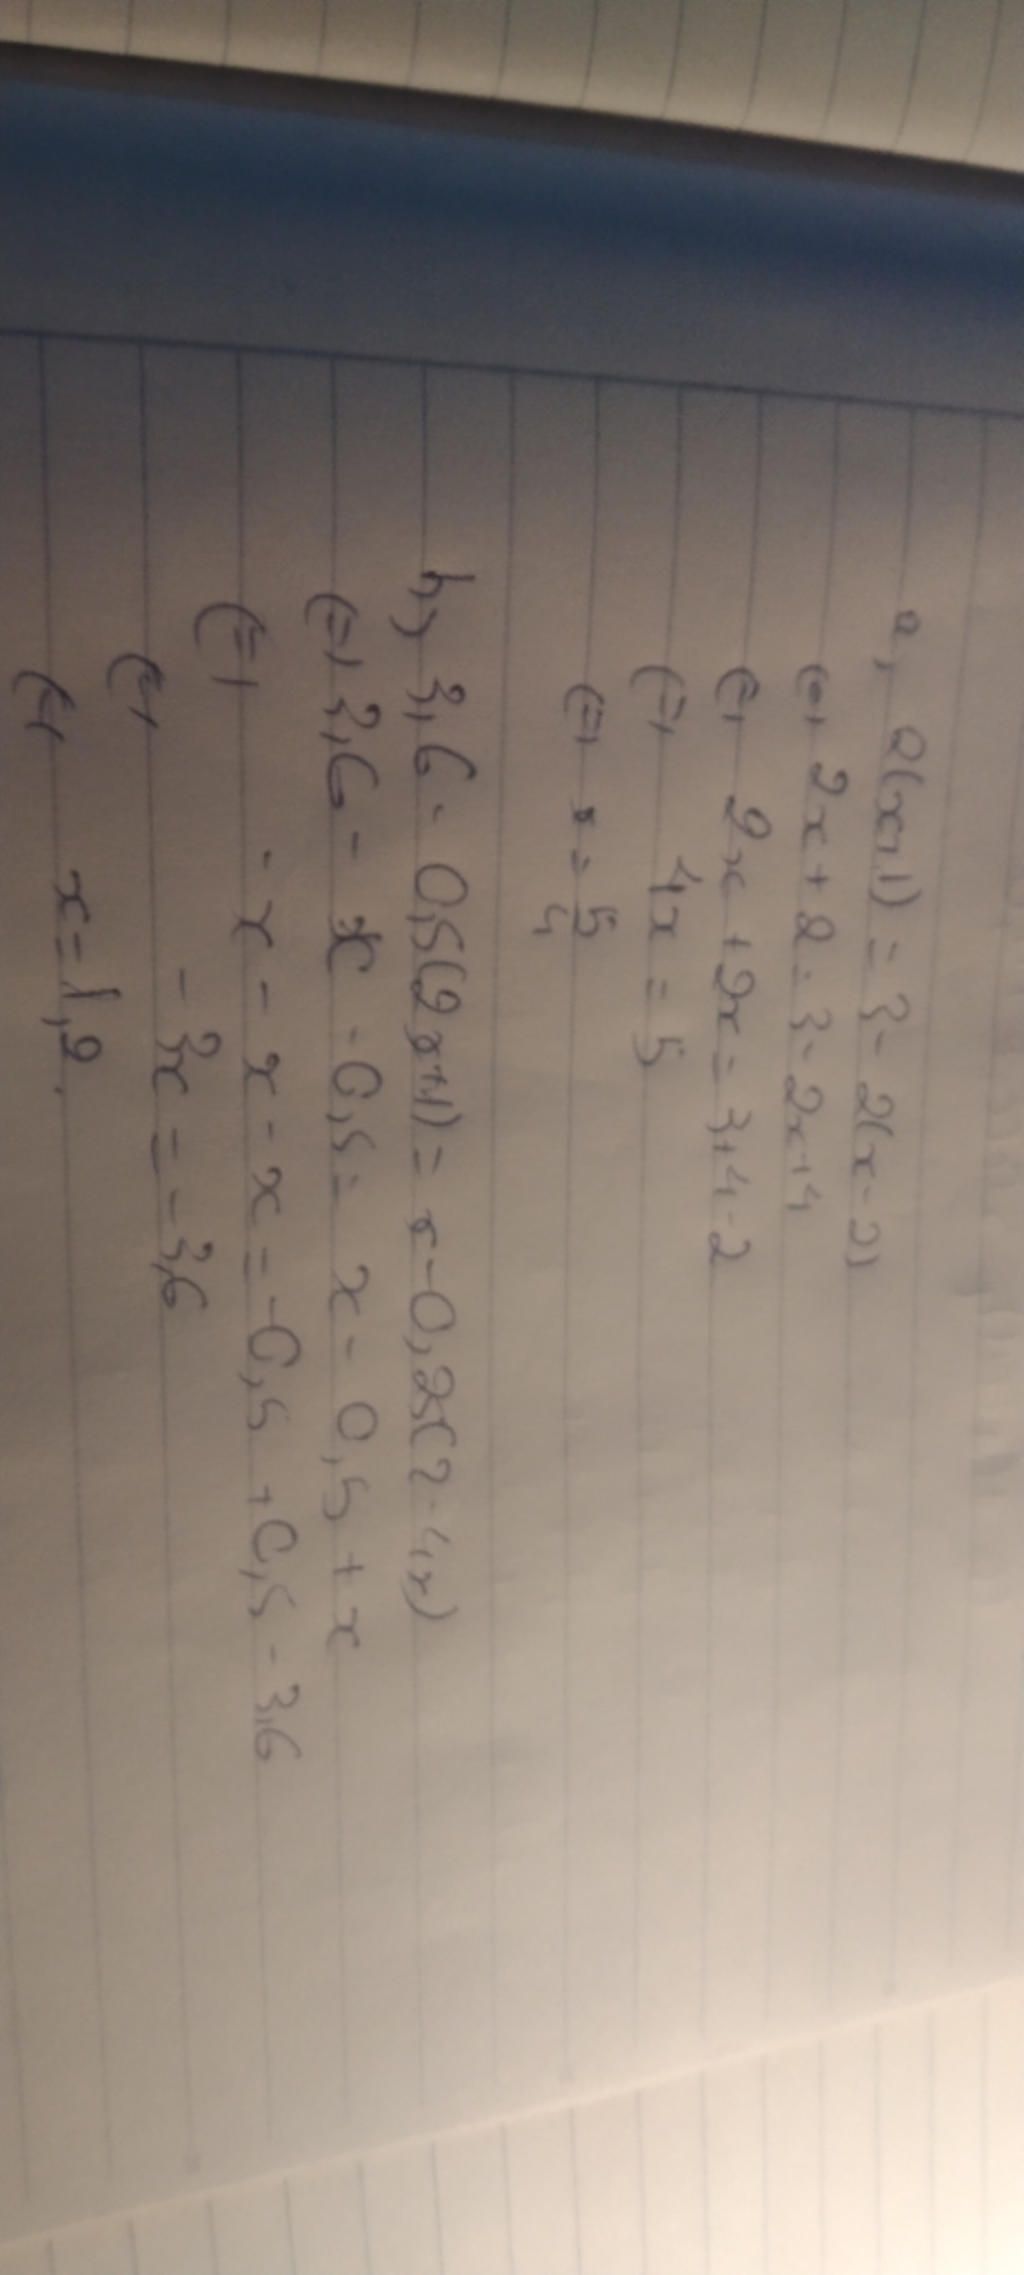 a, 2(x+1) = 3 - 2(x-2)
(=) 2x + 2 = 3 - 2x + 4
(=) 2x + 2x = 3 + 4 - 2
(=) 4x = 5
(=) x = 5/4
b, 3,6 - 0,5(2x+1) = x - 0,25(2-4x)
(=) 3,6 - x - 0,5 = x - 0,5 + x
(=) -x - x - x = -0,5 + 0,5 - 3,6
(=) -3x = -3,6
(=) x = 1,2.